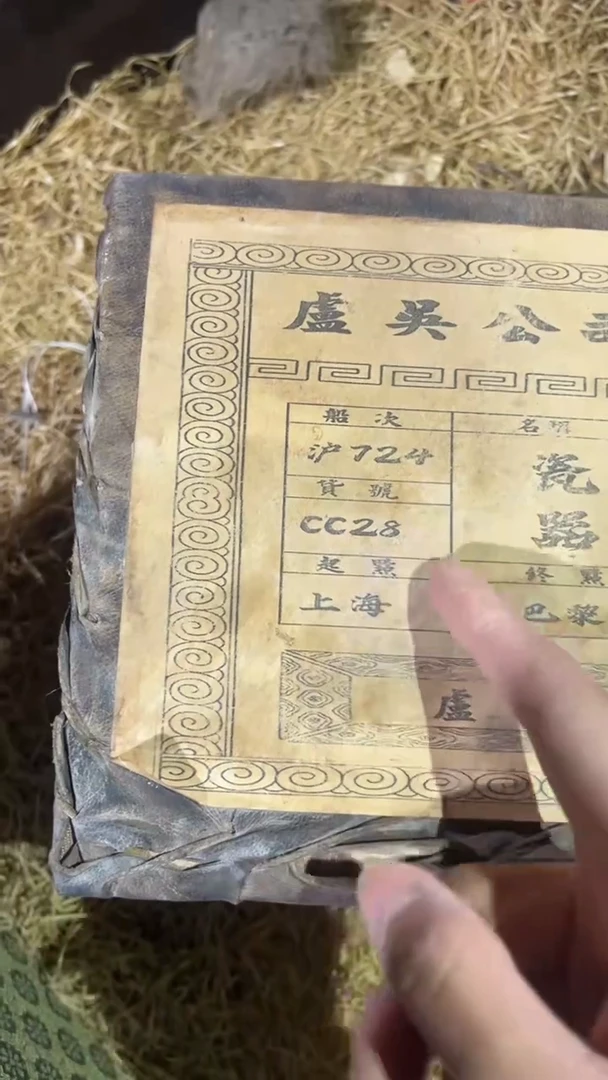 盧吳公司
船次 名稱
沪724 瓷器
貨號
CC28
起點 終點
上海 巴黎
盧